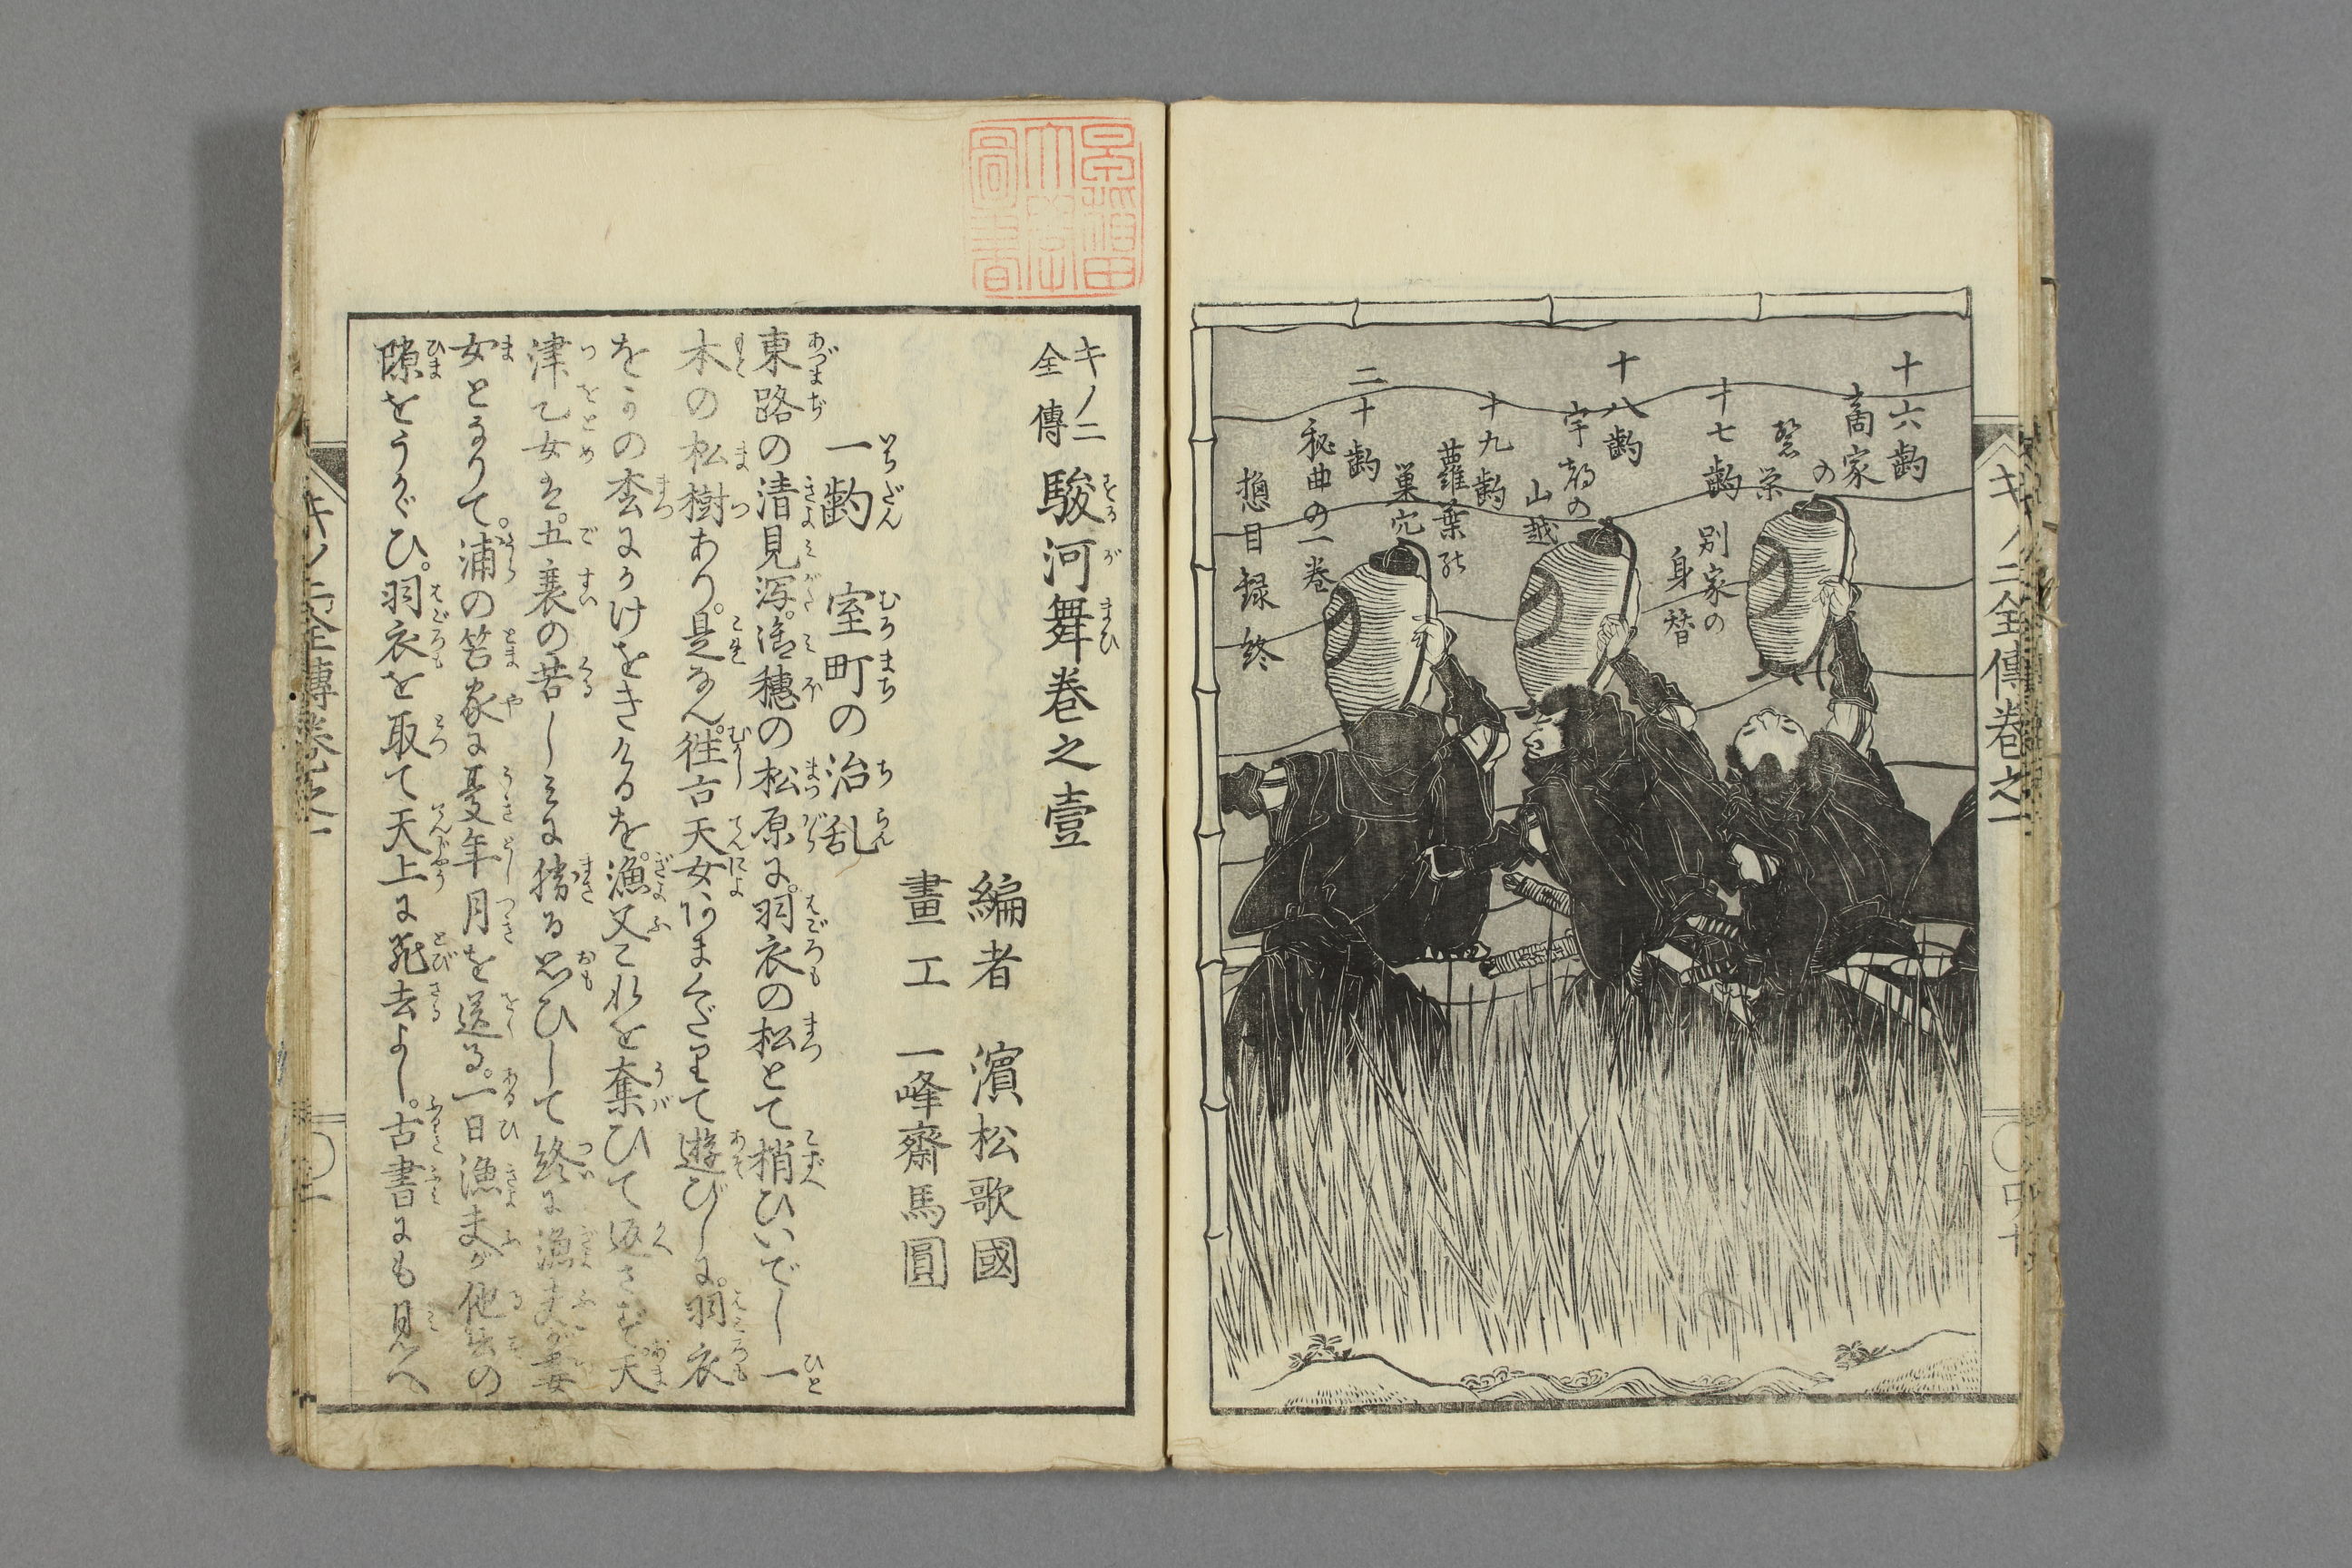 十六齣
商家
の
繁栄
十七齣
別家の
身替
十八齣
宇都の
山越
十九齣
蘿葉の
巣穴
二十齣
秘曲の一巻
摠目録終
キノ二全傳巻之一
早稲田
大学
図書
キノ二
全傳
駿河舞巻之壹
編者 濵松歌國
畫工 一峰齋馬圓
一齣 室町の治乱
東路の清見泻。御穂の松原に。羽衣の松とて梢ひいでし一
木の松樹あり。是なん。徃古天女あまくだりて遊びしに。羽衣
をこの枩にかけをきけるを。漁父これを奪ひて返さず。天
津乙女は。五衰の苦しみに勝る思ひして終に漁夫が妻
女となりて。浦の笘家に憂年月を送る。一日漁夫が他出の
隙をうかゞひ。羽衣を取て天上に飛去よし。古書にも見へ
キノ二全傳巻之一